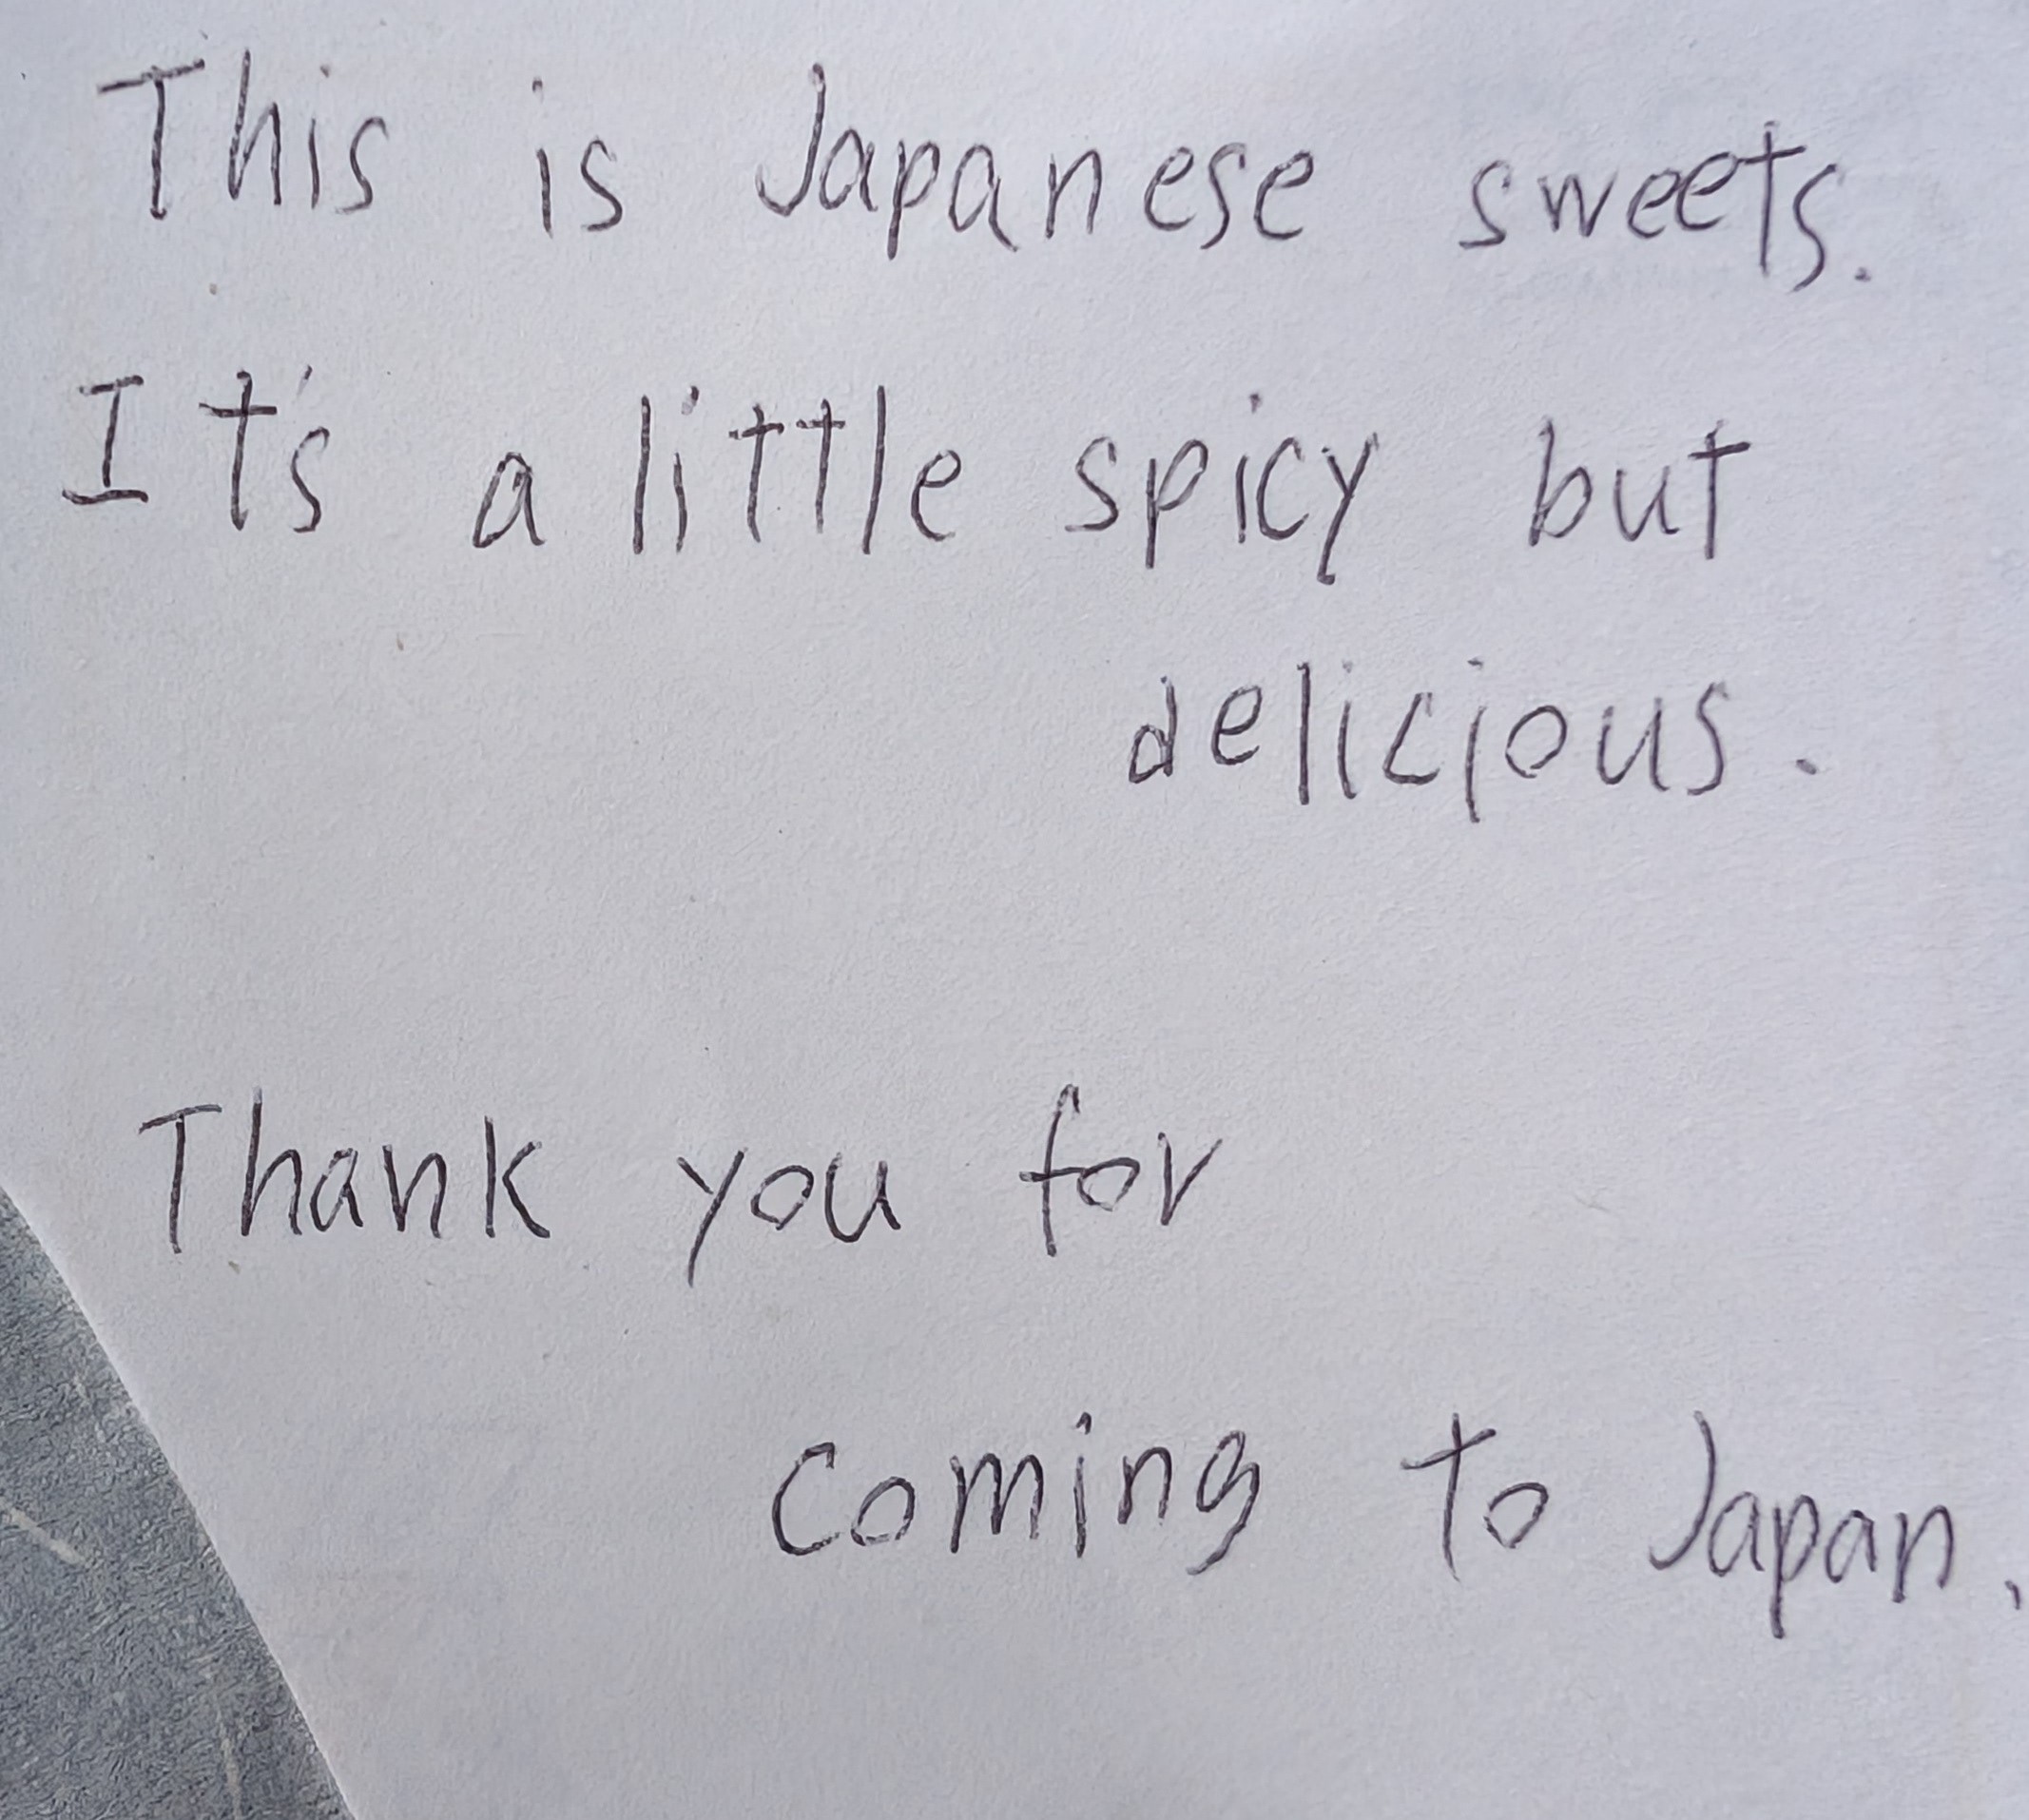 This is Japanese sweets.
It's a little spicy but
delicious.
Thank you for
coming to Japan.